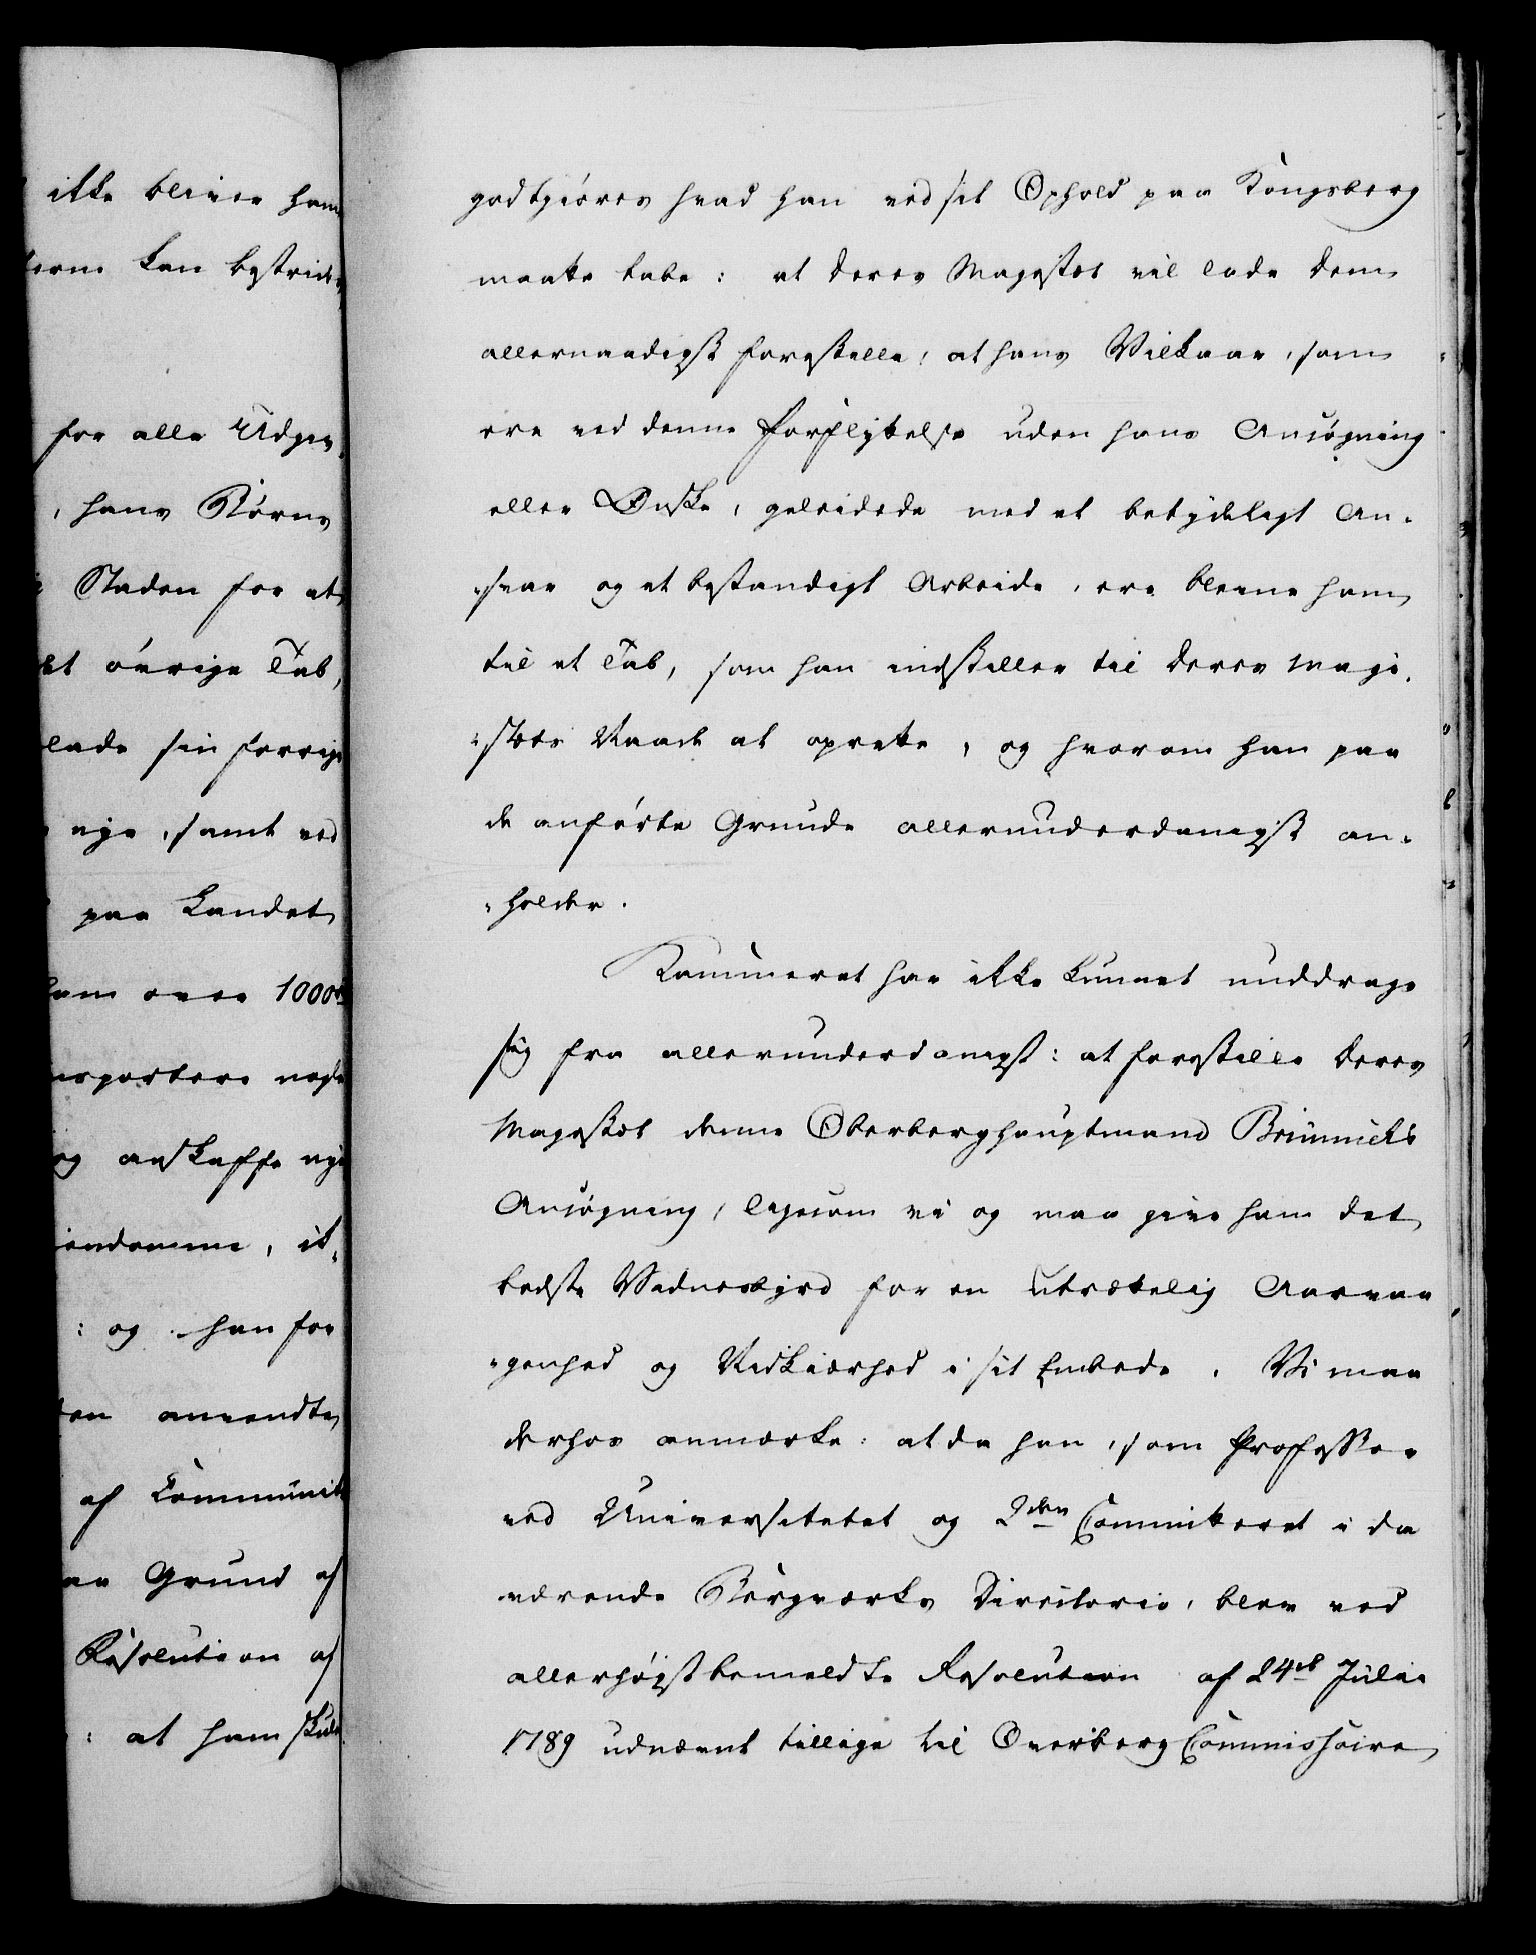 ikke bliver ham
kan bestride
for alle Udgiv
, hans Børns
Staden for at
øvrige Tab,
lade sin forrige
nye, samt ved
paa Landet
ham over 1000 rd
nsportere nogle
og anskaffe nye
iendomme, it
: og han for
anvendte
af Communit
Grund af
Resolution af
: at ham skul
godtgiøres hvad han ved sit Ophold paa Kongsberg
maatte tabe: at Deres Majestæt vil lade dem
allernaadigst forestille, at hans Vilkaar, som
ere ved denne Forflyttelse uden hans Ansøgning
eller Ønske, geleidede med et betydeligt An-
-svar og et bestandigt Arbeide, ere blevne ham
til et Tab, som han indstiller til Deres Maje-
-stæts Naade at oprette, og hvorom han paa
de anførte Grunde allerunderdanigst an-
-holder.
Kammeret har ikke kunnet unddrage
sig fra allerunderdanigst: at forestille Deres
Majestæt denne Oberberghauptmand Brünnichs
Ansøgning, ligesom vi og maa give ham det
bedste Vidnesbyrd for en utrættelig Aarvaa
-genhed og Nidkiærhed i sit Embede. Vi maa
derhos anmærke: at da han, som Professor
ved Universitetet og 2den Committeret i da
værende Bergværks Directorio, blev ved
allerhøigstbemeldte Resolution af 24de Julii
1789 udnævnt tillige til Overberg Commissaire